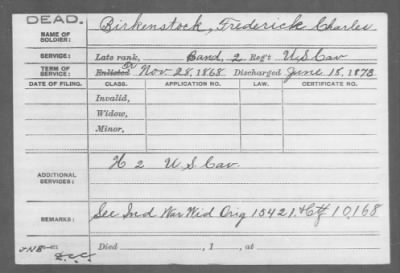 DEAD.
NAME OF SOLDIER: Birkenstock, Frederick Charles
SERVICE: Late rank, Band, 2 Reg't U.S. Cav
TERM OF SERVICE: Enlisted Nov. 28, 1868. Discharged June 18, 1873.
DATE OF FILING. CLASS. APPLICATION NO. LAW. CERTIFICATE NO.
Invalid,
Widow,
Minor,
ADDITIONAL SERVICES: H 2 U.S. Cav.
REMARKS: See Ind War Wid Orig 15421. Ctf 10,168
Died , 1 , at